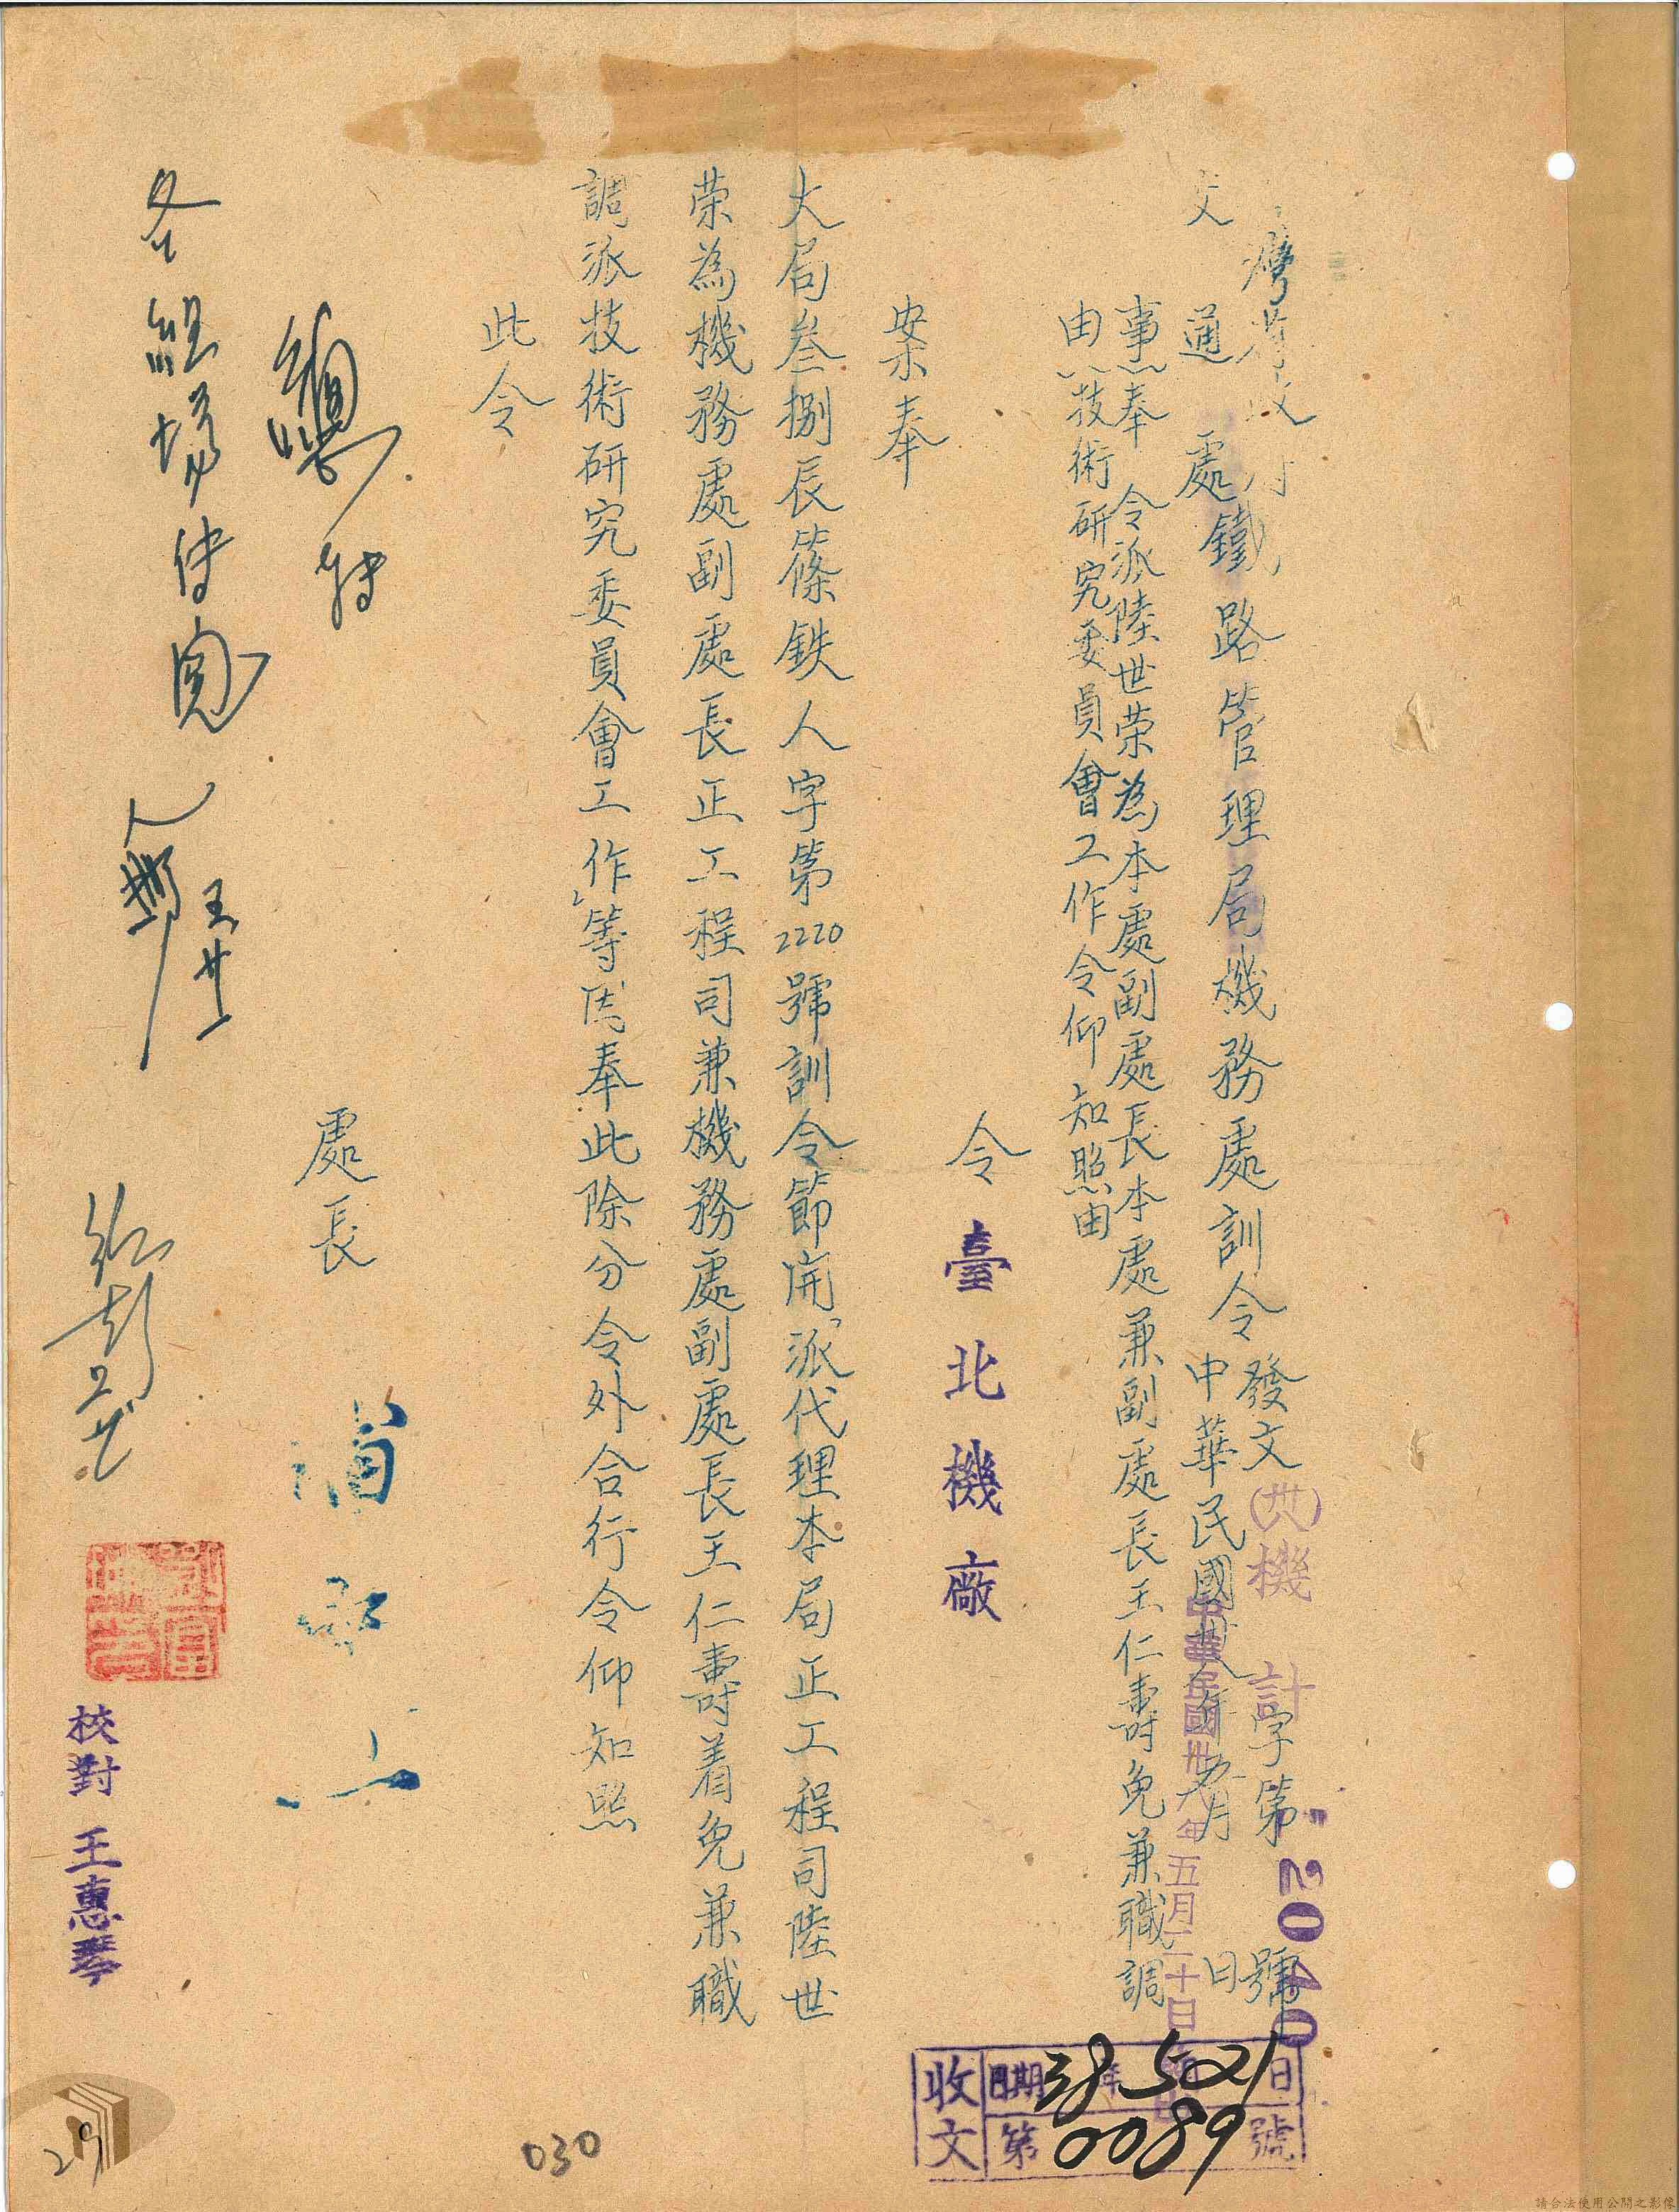 灣省政府
交通處鐵路管理局機務處訓令
發文(卅八)機計字第2040號
中華民國卅八年五月 日
中華民國卅八年五月二十日
事由:奉 令派陸世荣為本處副處長本處兼副處長王仁壽免兼職調
技術研究委員會工作令仰知照由
令 臺北機廠
案奉
大局叁捌辰篠鉄人字第2220號訓令節開「派代理本局正工程司陸世
荣為機務處副處長正工程司兼機務處副處長王仁壽着免兼職
調派技術研究委員會工作」等因奉此除分令外合行令仰知照
此令
處長
各組場傳閱
五廿一
校對 王惠琴
收文 日期 38年5月21日
第0089號
030
29
請合法使用公開之影像